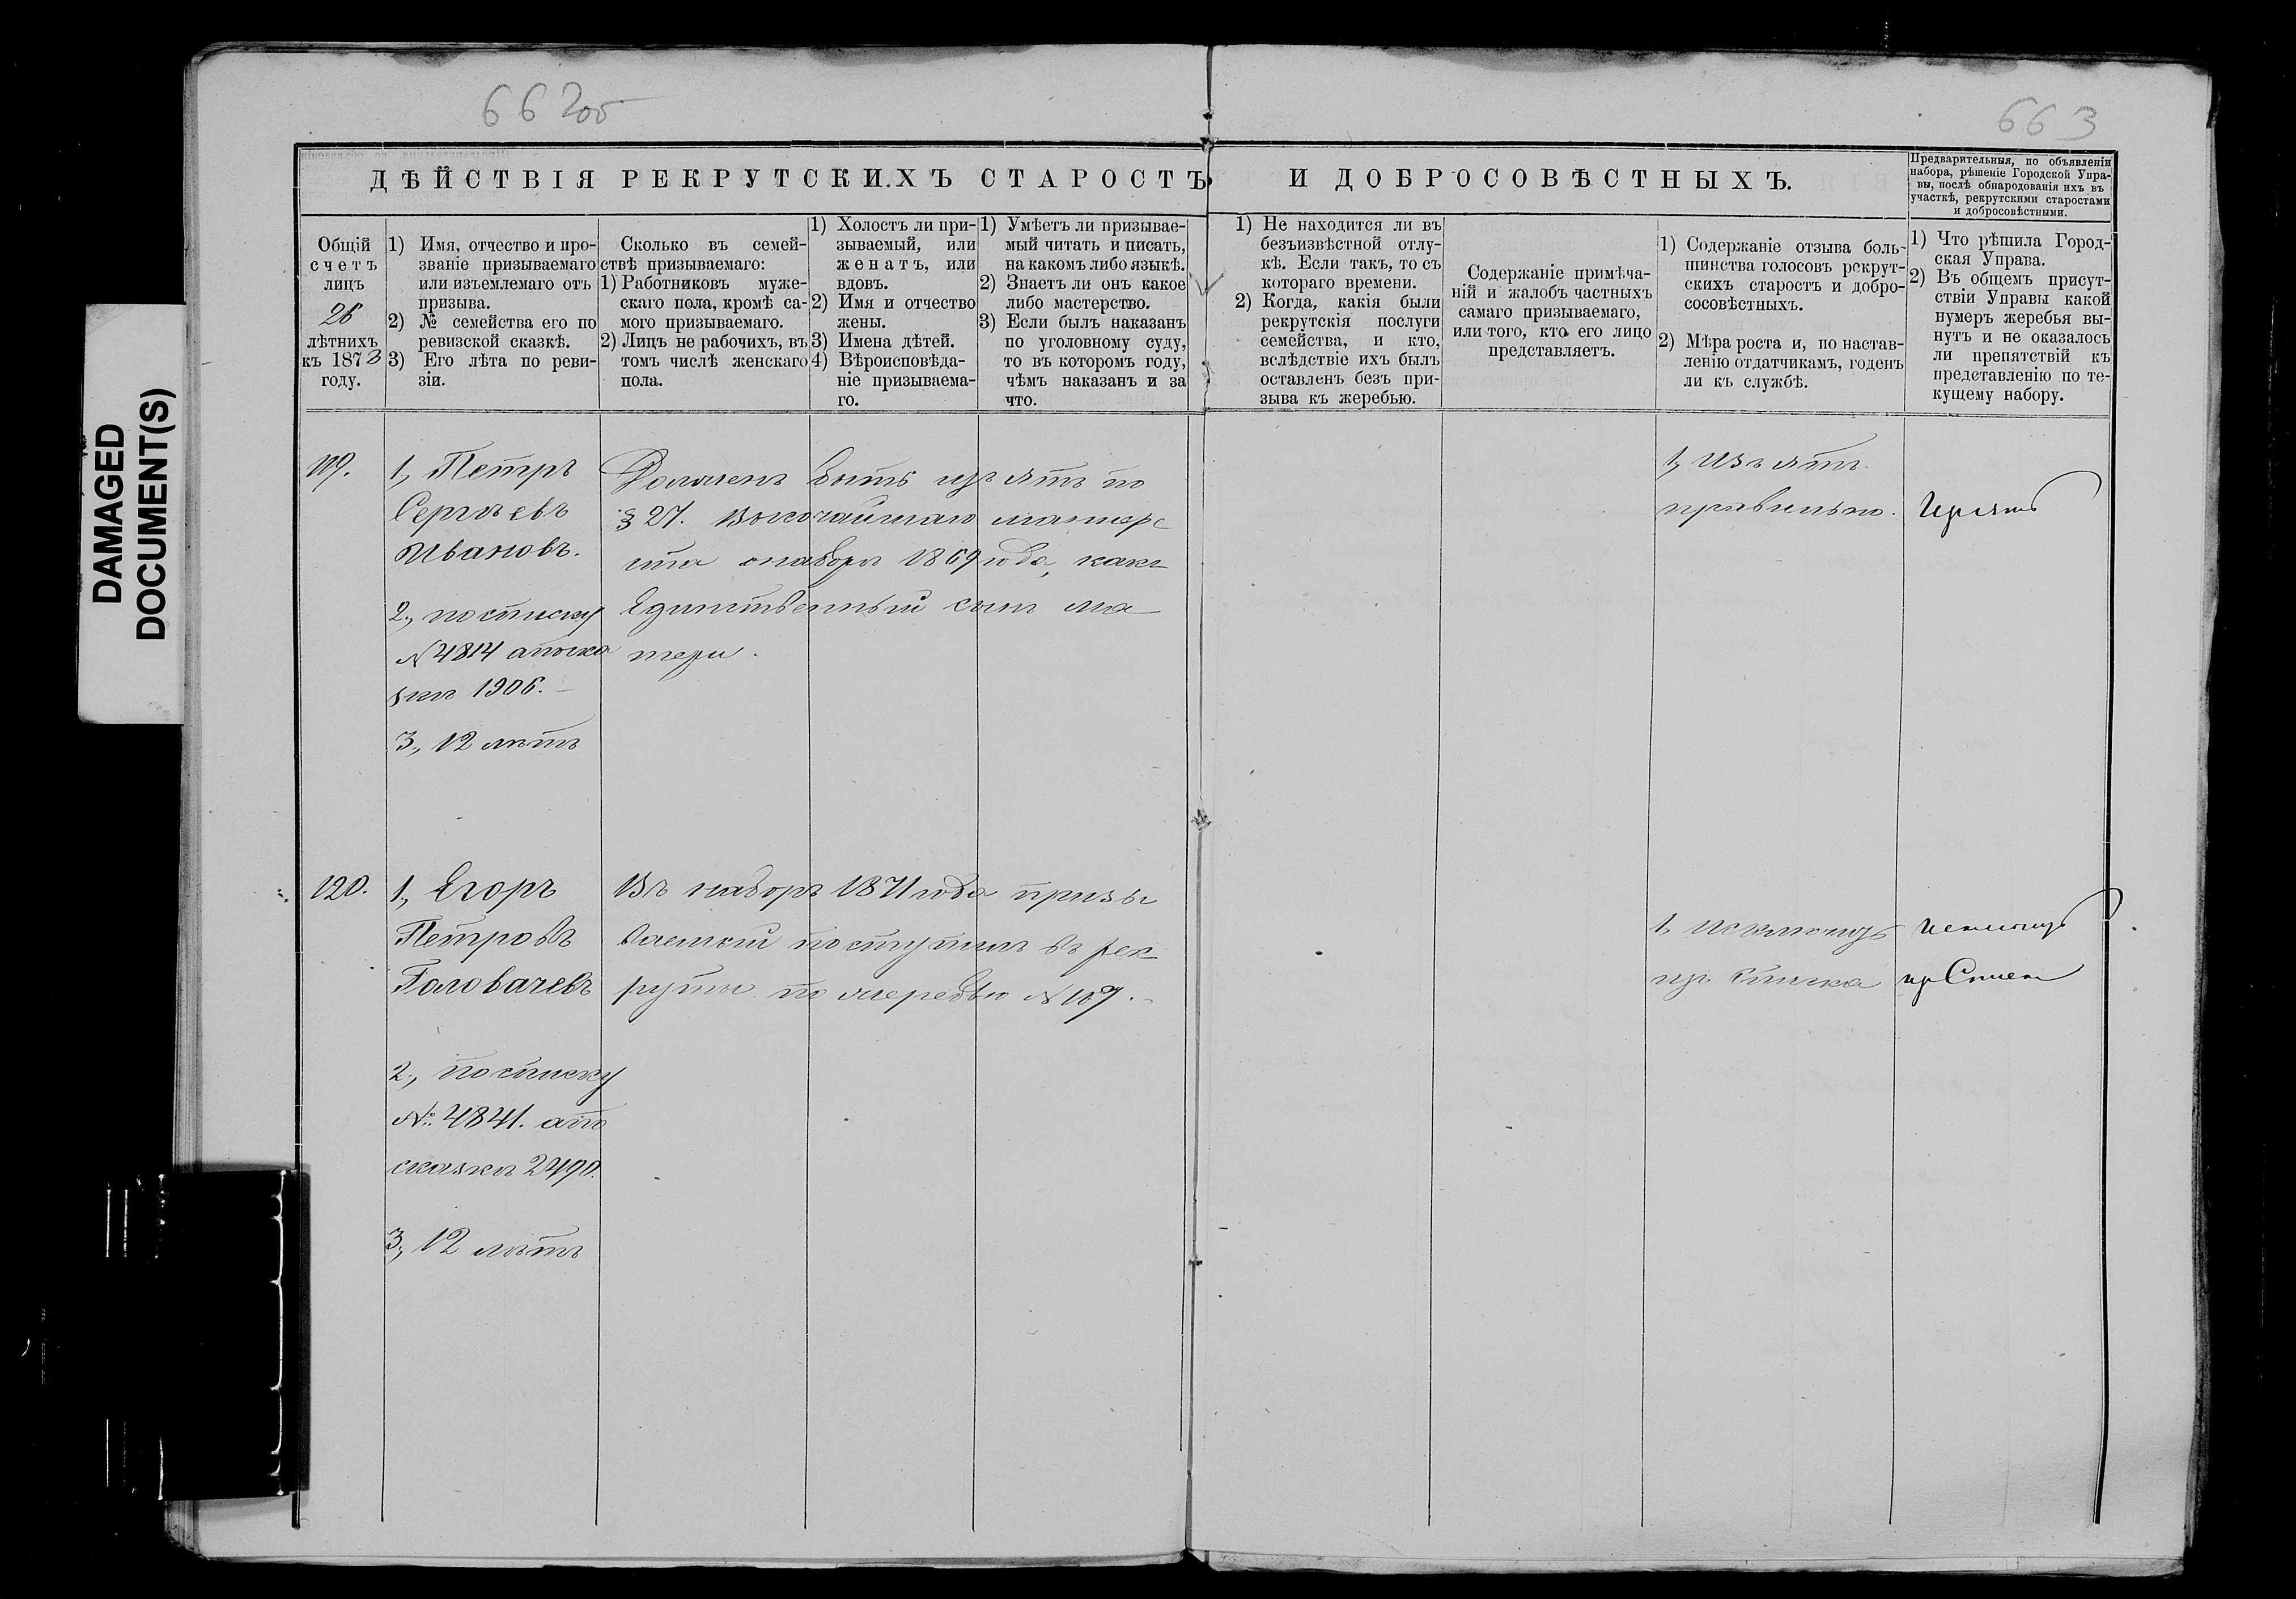 DAMAGED
DOCUMENT(S)
66 2об
663
ДѢЙСТВІЯ РЕКРУТСКИХЪ СТАРОСТЪ
И ДОБРОСОВѢСТНЫХЪ.
Предварительныя, по объявленіи
набора, рѣшеніе Городской Упра-
вы, послѣ обнародованія ихъ въ
участкѣ, рекрутскими старостами
и добросовѣстными.
Общій
счетъ
лицъ
26
лѣтнихъ
къ 1872
году.
1) Имя, отчество и про-
званіе призываемаго
или изъемлемаго отъ
призыва.
2) № семейства его по
ревизской сказкѣ.
3) Его лѣта по реви-
зіи.
Сколько въ семей-
ствѣ призываемаго:
1) Работниковъ муже-
скаго пола, кромѣ са-
мого призываемаго.
2) Лицъ не рабочихъ, въ
томъ числѣ женскаго
пола.
1) Холостъ ли при-
зываемый, или
женатъ, или
вдовъ.
2) Имя и отчество
жены.
3) Имена дѣтей.
4) Вѣроисповѣда-
ніе призываема-
го.
1) Умѣетъ ли призывае-
мый читать и писать,
на какомъ либо языкѣ.
2) Знаетъ ли онъ какое
либо мастерство.
3) Если былъ наказанъ
по уголовному суду,
то въ которомъ году,
чѣмъ наказанъ и за
что.
1) Не находится ли въ
безъизвѣстной отлу-
кѣ. Если такъ, то съ
котораго времени.
2) Когда, какія были
рекрутскія послуги
семейства, и кто,
вслѣдствіе ихъ былъ
оставленъ безъ при-
зыва къ жеребью.
Содержаніе примѣча-
ній и жалобъ частныхъ
самаго призываемаго,
или того, кто его лицо
представляетъ.
1) Содержаніе отзыва боль-
шинства голосовъ рекрут-
скихъ старостъ и добро-
сосовѣстныхъ.
2) Мѣра роста и, по настав-
ленію отдатчикамъ, годенъ
ли къ службѣ.
1) Что рѣшила Город-
ская Управа.
2) Въ общемъ присут-
ствіи Управы какой
нумеръ жеребья вы-
нутъ и не оказалось
ли препятствій къ
представленію по те-
кущему набору.
119.
1., Петръ
Сергѣевъ
Ивановъ.
2., по списку
№ 4814 а по ска
зкѣ 1906.
3., 12 лѣтъ
Долженъ быть изъятъ по
§ 27. Высочайшаго манифе
ста о наборѣ 1869 года, какъ
единственный сынъ ма
тери.
1, Изъятъ
правильно.
Изъятъ
120.
1., Егоръ
Петровъ
Головачевъ
2., по списку
№ 4841. а по
сказкѣ 2490.
3., 12 лѣтъ
Въ наборъ 1871 года призы
ваемый поступилъ въ рек
руты по жеребью № 107.
1, Исключить
изъ списка
Исключить
изъ Списка